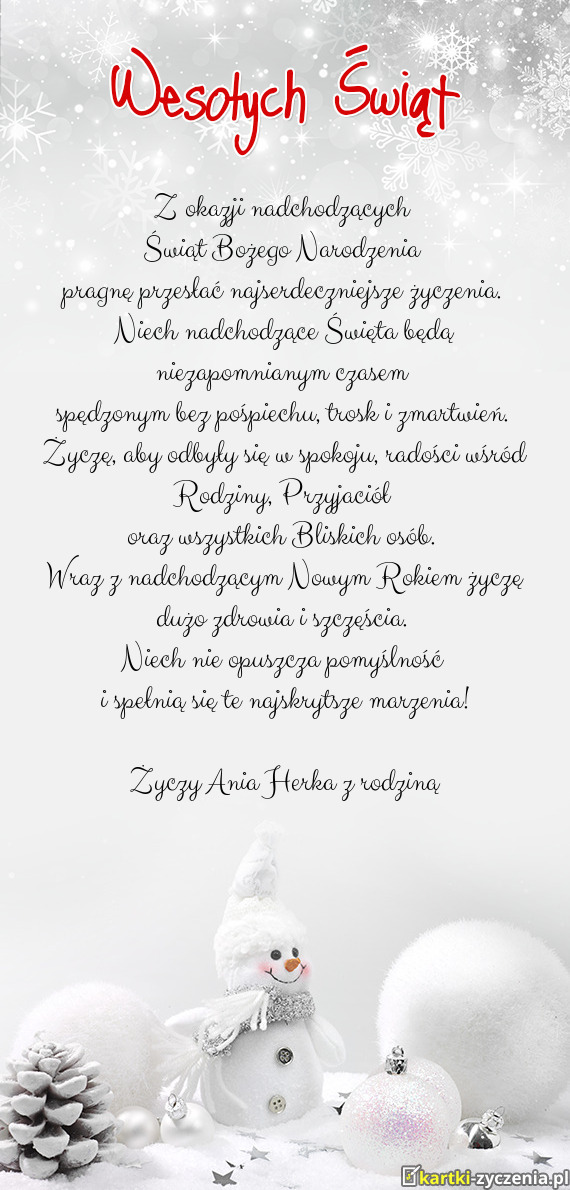 Wesołych Świąt
Z okazji nadchodzących
Świąt Bożego Narodzenia
pragnę przesłać najserdeczniejsze życzenia.
Niech nadchodzące Święta będą
niezapomnianym czasem
spędzonym bez pośpiechu, trosk i zmartwień.
Życzę, aby odbyły się w spokoju, radości wśród
Rodziny, Przyjaciół
oraz wszystkich Bliskich osób.
Wraz z nadchodzącym Nowym Rokiem życzę
dużo zdrowia i szczęścia.
Niech nie opuszcza pomyślność
i spełnią się te najskrytsze marzenia!
Życzy Ania Herka z rodziną
kartki-zyczenia.pl